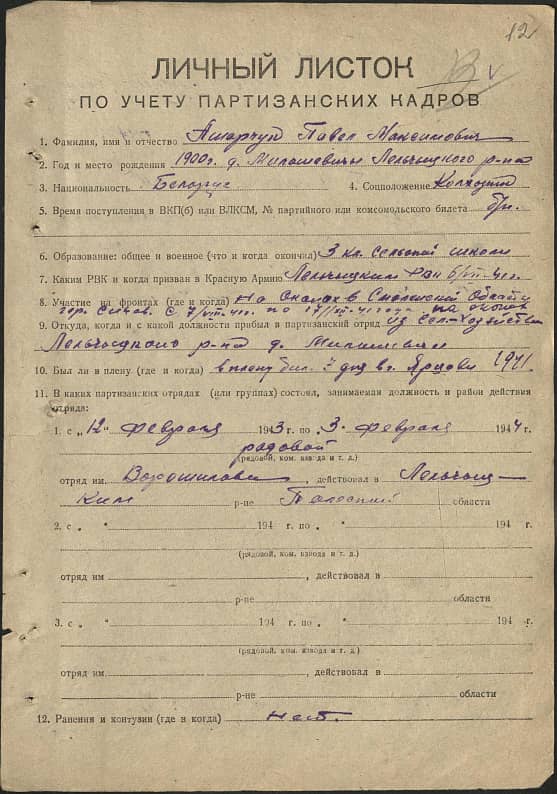 12
ЛИЧНЫЙ ЛИСТОК
ПО УЧЕТУ ПАРТИЗАНСКИХ КАДРОВ
1. Фамилия, имя и отчество Ашарчук Павел Максимович
2. Год и место рождения 1900г. д. Милошевичи Лельчицкого р-на
3. Национальность Белорус 4. Соцположение Колхозник
5. Время поступления в ВКП(б) или ВЛКСМ, № партийного или комсомольского билета б/п.
6. Образование: общее и военное (что и когда окончил) 3 кл. сельской школы
7. Каким РВК и когда призван в Красную Армию Лельчицким РВК 6/VII-41г.
8. Участие на фронтах (где и когда) На окопах в Смоленской области
гор. с 7/VII-41г. по 17/VII-41 года на окопах
9. Откуда, когда и с какой должности прибыл в партизанский отряд из сел-хозяйства
Лельчицкого р-на д. Милошевичи
10. Был ли в плену (где и когда) в плену был 7 дня в г. Ярцеви 1941.
11. В каких партизанских отрядах (или группах) состоял, занимаемая должность и район действия
отряда:
1. с „12“ февраля 1943 г. по „3“ февраля 1944 г.
рядовой
(рядовой, ком. взвода и т. д.)
отряд им Ворошилова, действовал в Лельчиц-
ким р-не Полесский области
2. с „ “ 194 г. по „ “ 194 г.
(рядовой, ком. взвода и т. д.)
отряд им , действовал в
р-не области
3. с „ “ 194 г. по „ “ 194 г.
(рядовой, ком. взвода и т. д.)
отряд им , действовал в
р-не области
12. Ранения и контузии (где и когда) нет.